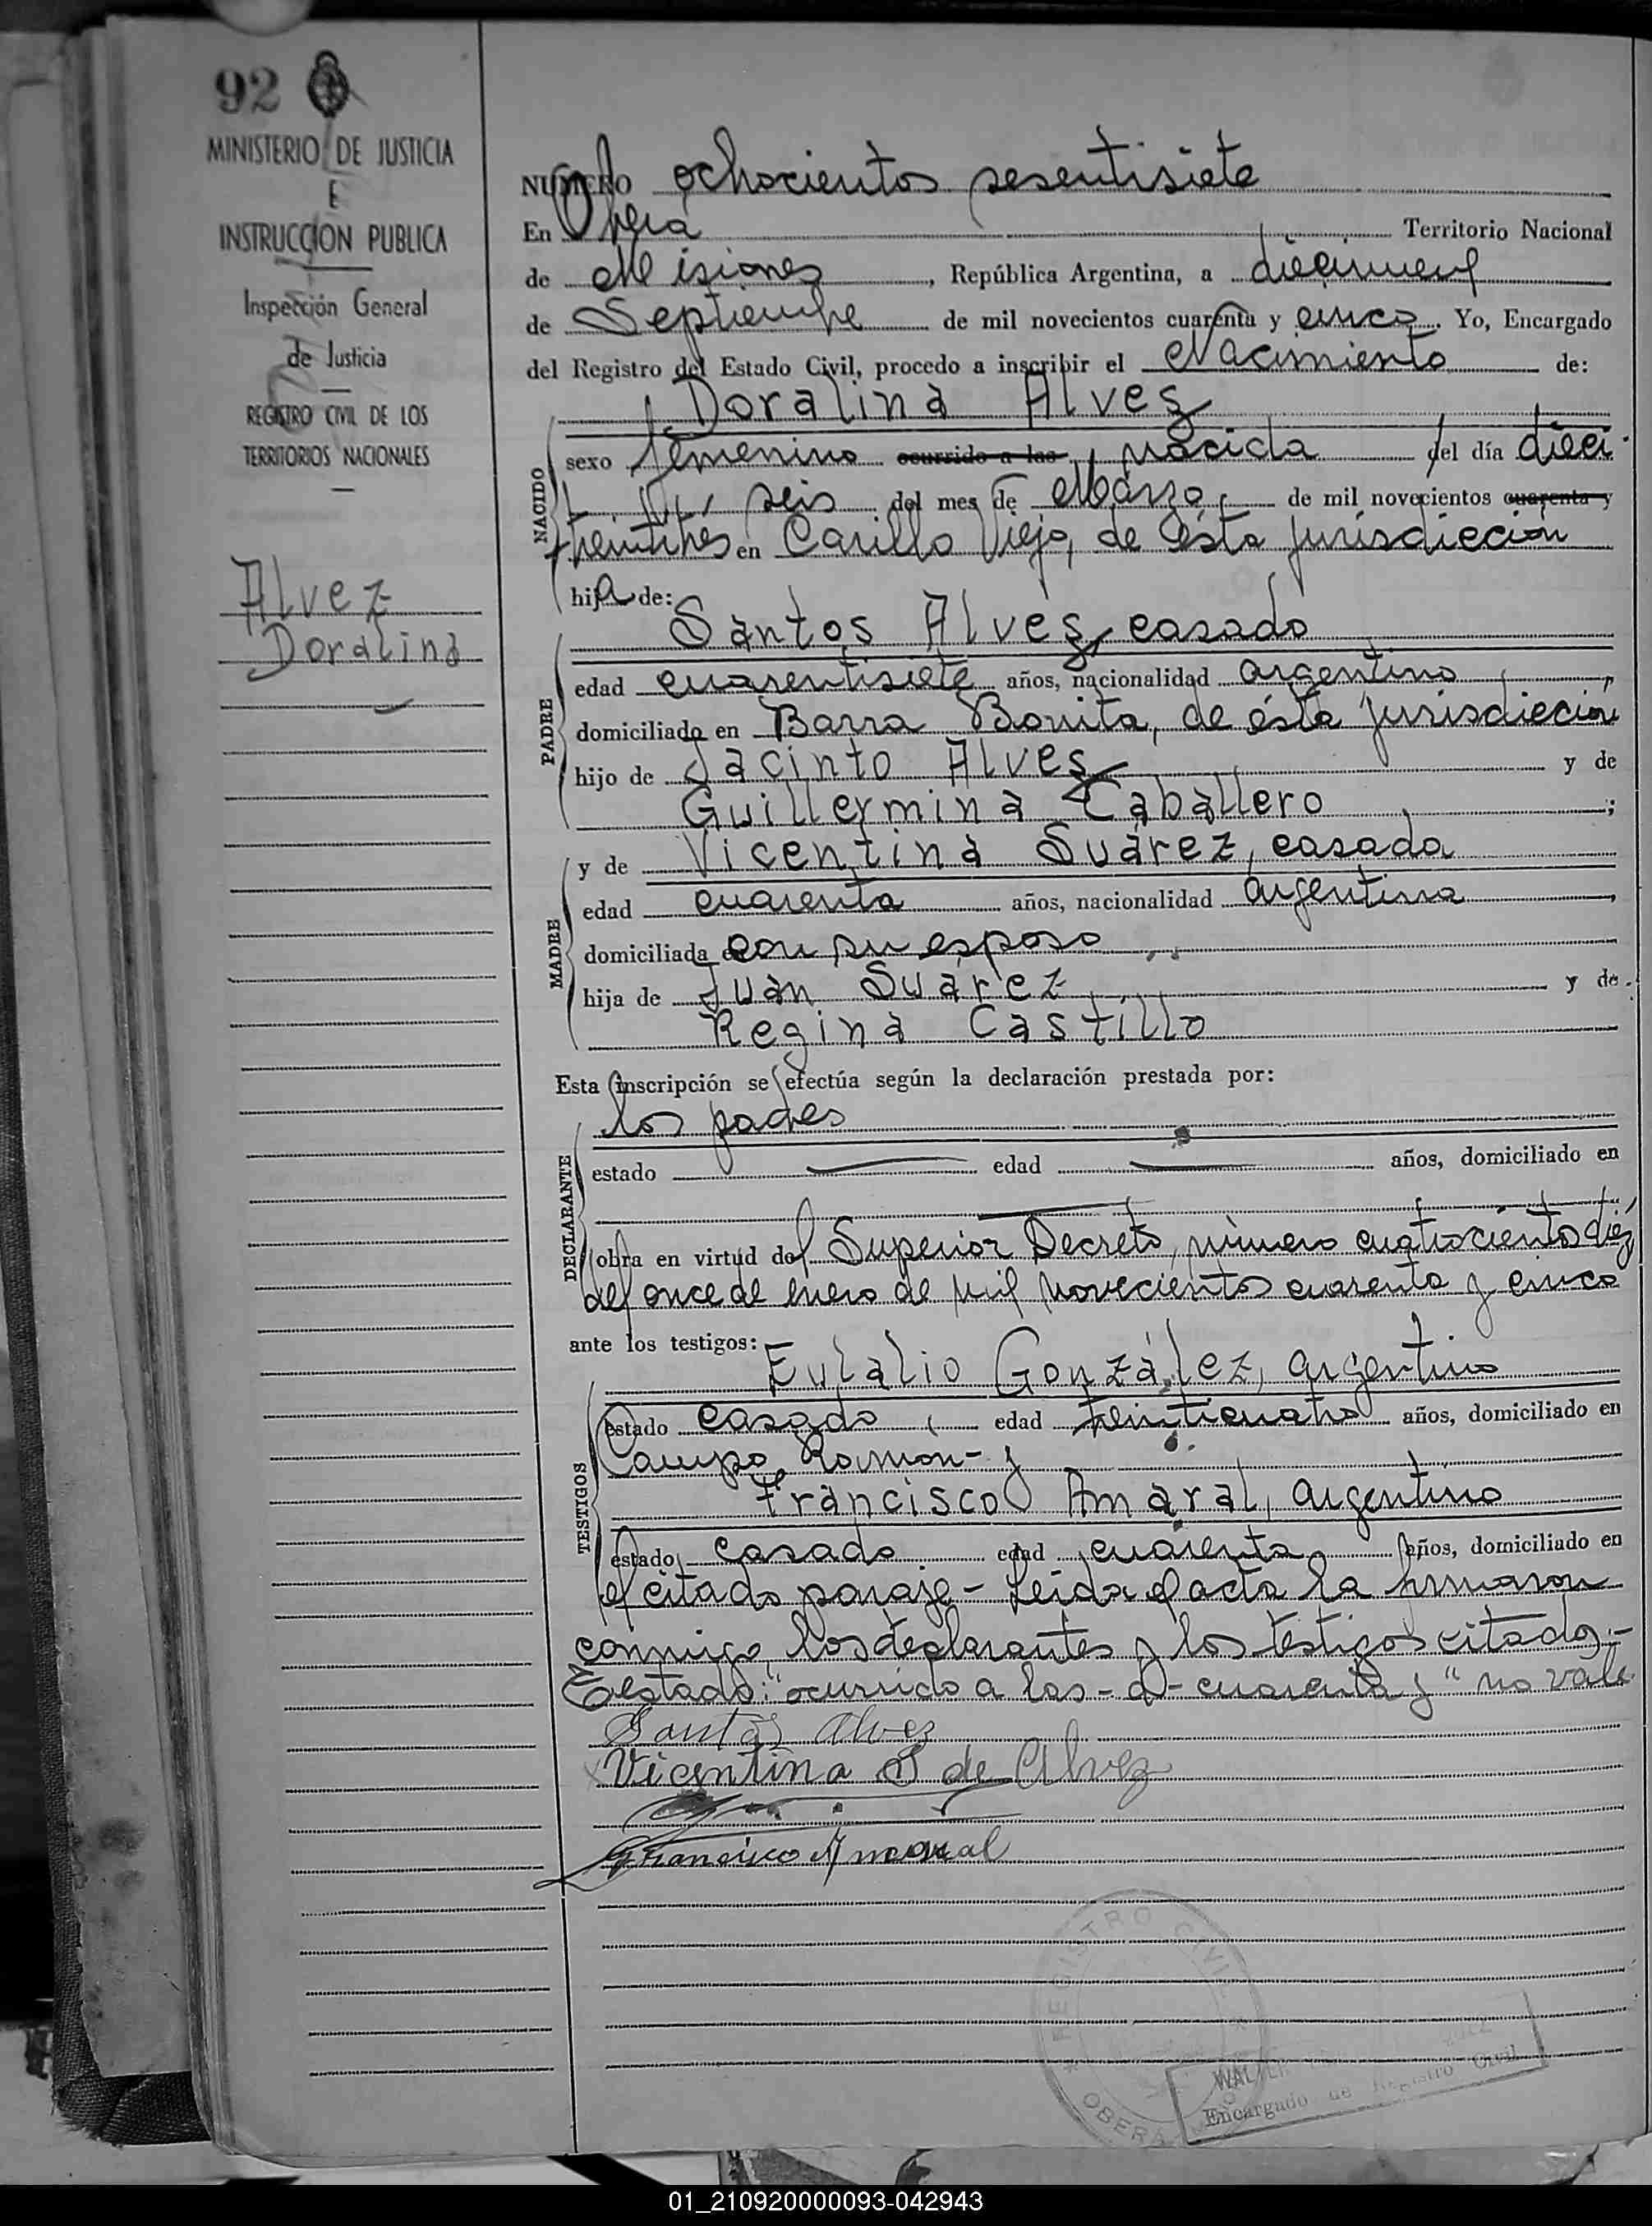 92
MINISTERIO DE JUSTICIA
E
INSTRUCCION PUBLICA
Inspección General
de Justicia
REGISTRO CIVIL DE LOS
TERRITORIOS NACIONALES
Alvez
Doralina
NUMERO ochocientos sesentisiete
En Oberá Territorio Nacional
de Misiones, República Argentina, a diecinueve
de Septiembre de mil novecientos cuarenta y cinco. Yo, Encargado
del Registro del Estado Civil, procedo a inscribir el Nacimiento de:
Doralina Alves
NACIDO
sexo femenino ocurrido a las nacida del día dieci
seis del mes de Marzo de mil novecientos cuarenta y
treintitrés en Carillo Viejo, de ésta jurisdicción
hija de:
Santos Alves, casado
PADRE
edad cuarentisiete años, nacionalidad argentino,
domiciliado en Barra Bonita, de ésta jurisdicción
hijo de Jacinto Alves y de
Guillermina Caballero ;
y de Vicentina Suárez, casada
MADRE
edad cuarenta años, nacionalidad argentina
domiciliada con su esposo
hija de Juan Suárez y de
Regina Castillo
Esta inscripción se efectúa según la declaración prestada por:
los padres
DECLARANTE
estado edad años, domiciliado en
obra en virtud del Superior Decreto, número cuatrocientos diéz
del once de Enero de mil novecientos cuarenta y cinco
ante los testigos:
Eulalio González, argentino
TESTIGOS
estado casado, edad treinticuatro años, domiciliado en
Campo Ramon- y
Francisco Amaral, argentino
estado casado edad cuarenta años, domiciliado en
el citado paraje- Leída el acta la firmaron
conmigo los declarantes y los testigos citados.-
Testado: "ocurrido a las- d- cuarenta y" no vale
Santos Alvez
Vicentina S de Alvez
Francisco Amaral
REGISTRO CIVIL
OBERA
Encargado de Registro Civil
01_210920000093-042943